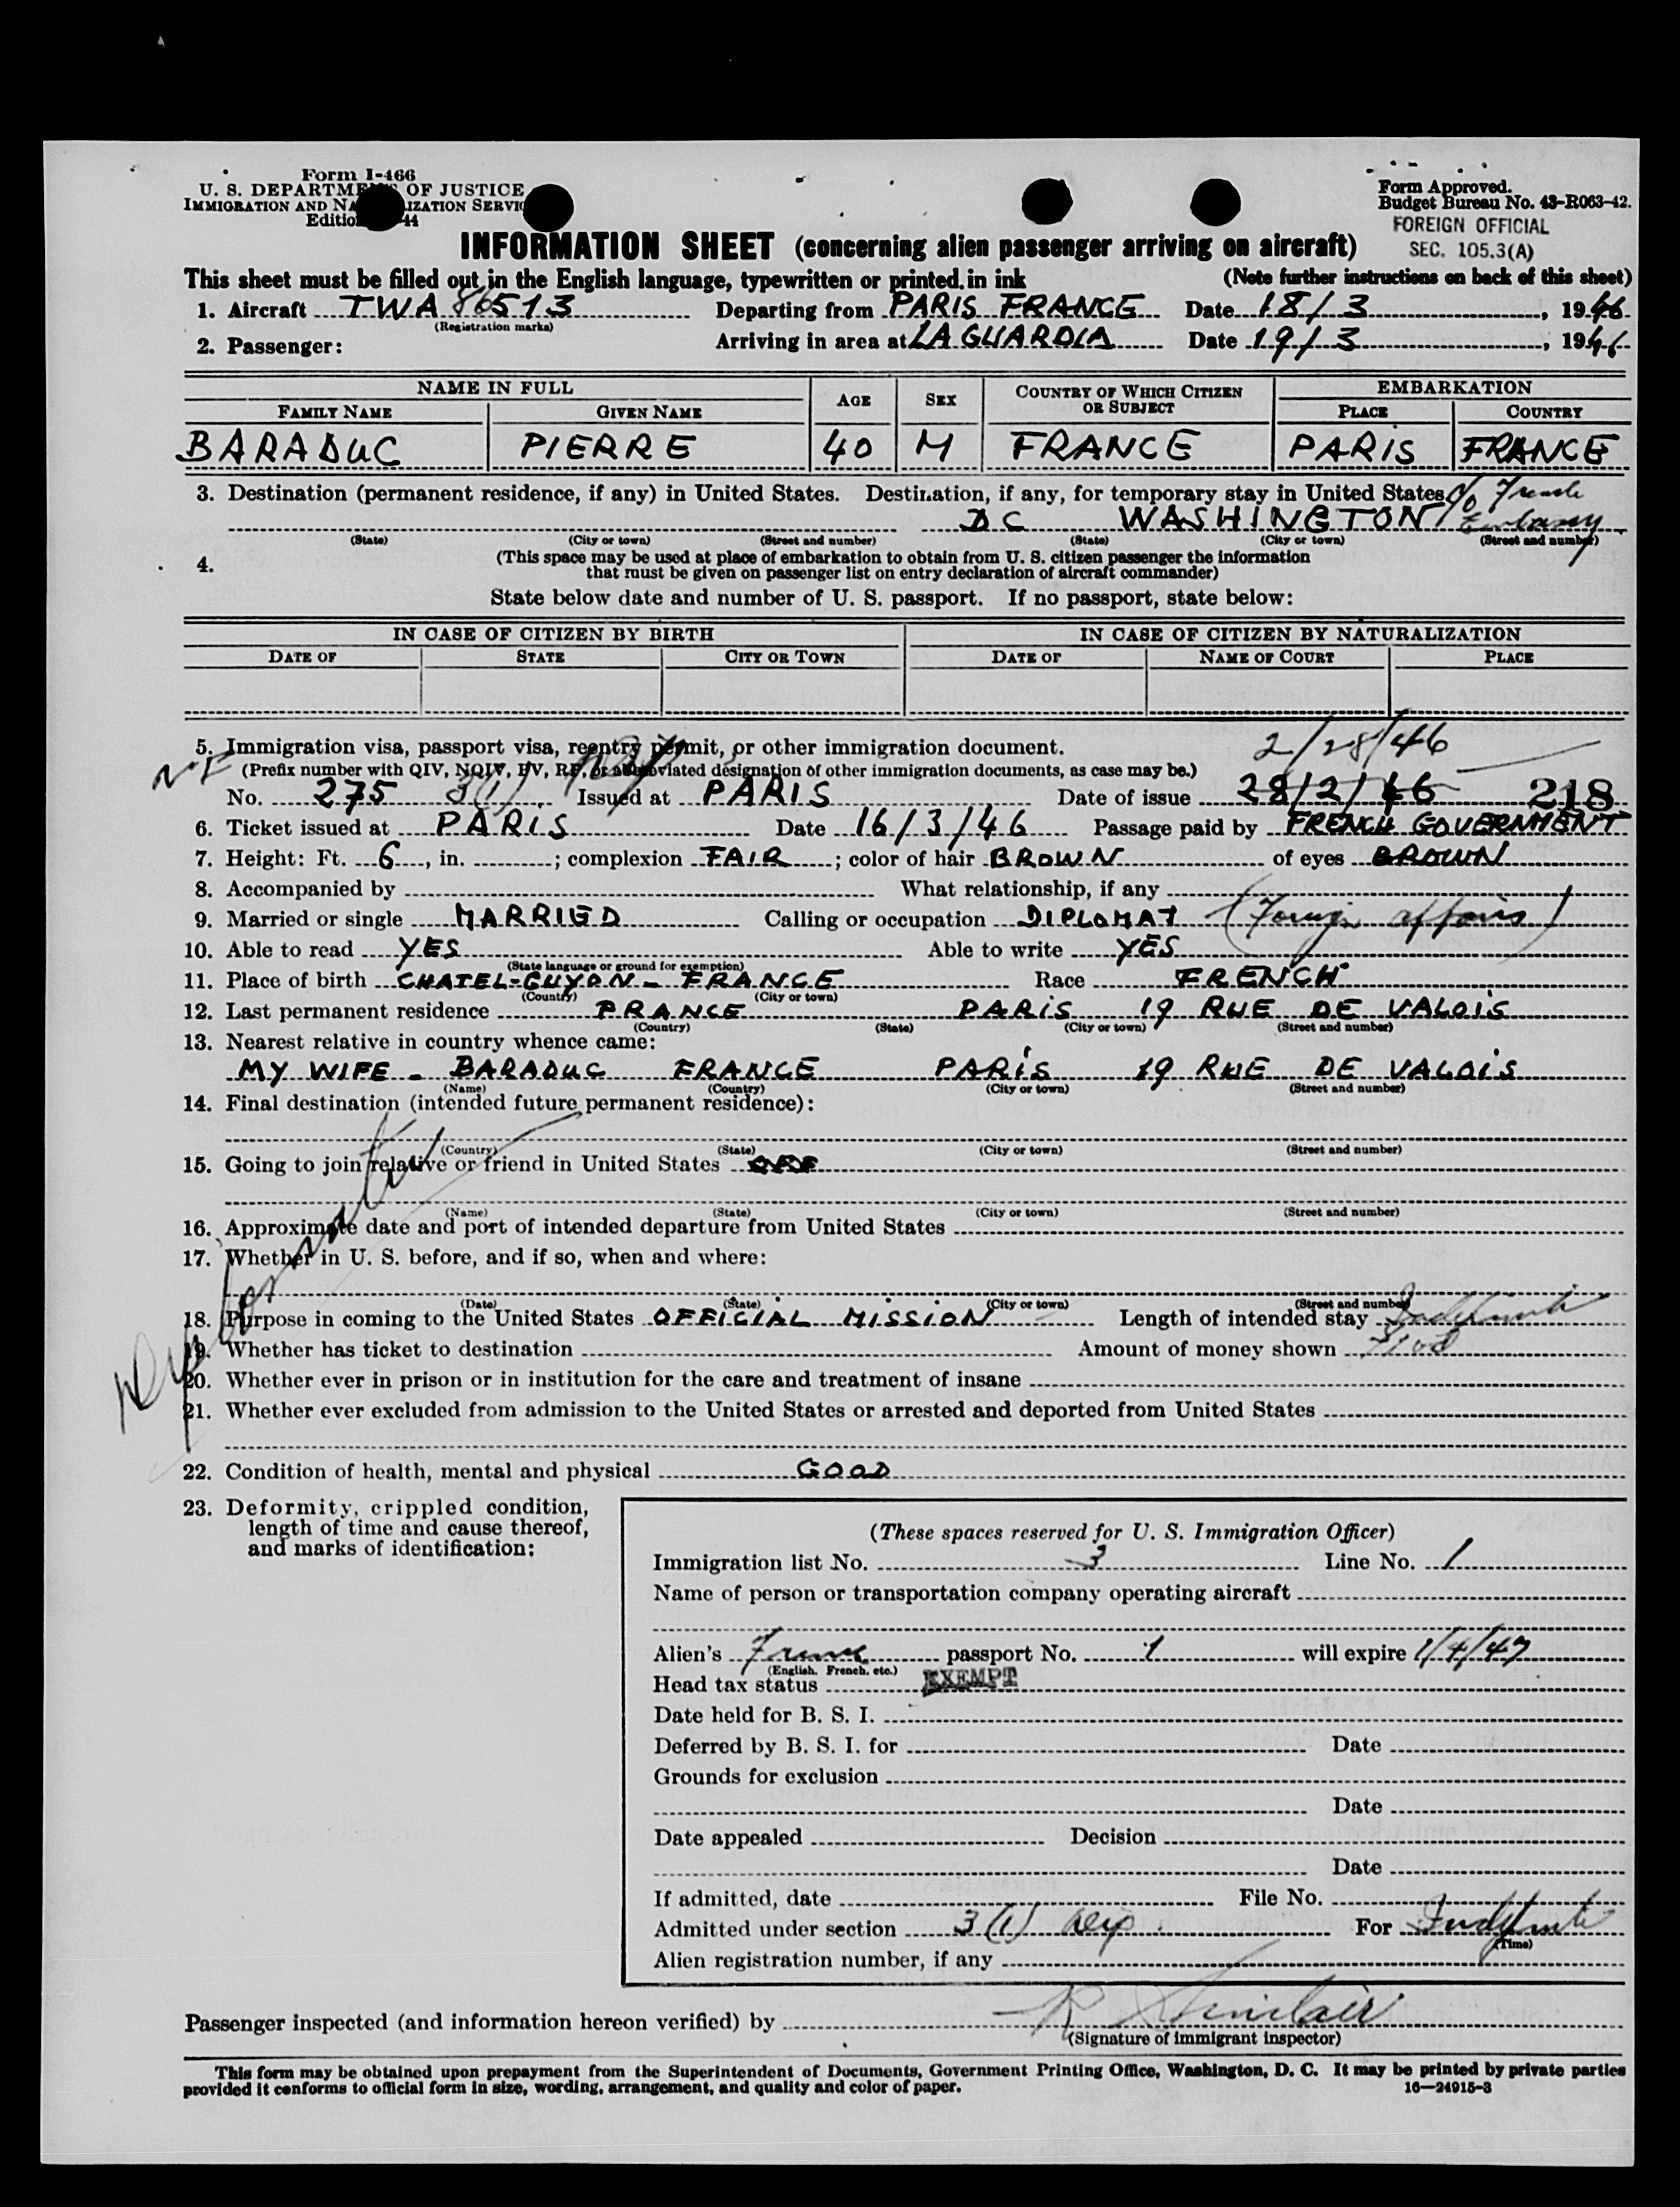 Form I-466
U. S. DEPARTMENT OF JUSTICE
IMMIGRATION AND NATURALIZATION SERVICE
Edition 44
Form Approved.
Budget Bureau No. 43-R063-42.
FOREIGN OFFICIAL
SEC. 105.3(A)
INFORMATION SHEET (concerning alien passenger arriving on aircraft)
This sheet must be filled out in the English language, typewritten or printed in ink (Note further instructions on back of this sheet)
1. Aircraft TWA 86513 Departing from PARIS FRANCE Date 18/3, 1946
(Registration marks)
2. Passenger: Arriving in area at LA GUARDIA Date 19/3, 1946
NAME IN FULL AGE SEX COUNTRY OF WHICH CITIZEN OR SUBJECT EMBARKATION
FAMILY NAME GIVEN NAME PLACE COUNTRY
BARADUC PIERRE 40 M FRANCE PARIS FRANCE
3. Destination (permanent residence, if any) in United States. Destination, if any, for temporary stay in United States c/o French
DC WASHINGTON Embassy
(State) (City or town) (Street and number) (State) (City or town) (Street and number)
4. (This space may be used at place of embarkation to obtain from U. S. citizen passenger the information
that must be given on passenger list on entry declaration of aircraft commander)
State below date and number of U. S. passport. If no passport, state below:
IN CASE OF CITIZEN BY BIRTH IN CASE OF CITIZEN BY NATURALIZATION
DATE OF STATE CITY OR TOWN DATE OF NAME OF COURT PLACE
5. Immigration visa, passport visa, reentry permit, or other immigration document. 2/28/46
(Prefix number with QIV, NQIV, PV, RP, or abbreviated designation of other immigration documents, as case may be.)
No. 275 3(1) Issued at PARIS Date of issue 28/2/46 218
6. Ticket issued at PARIS Date 16/3/46 Passage paid by FRENCH GOVERNMENT
7. Height: Ft. 6, in. ; complexion FAIR; color of hair BROWN of eyes BROWN
8. Accompanied by What relationship, if any
9. Married or single MARRIED Calling or occupation DIPLOMAT (Foreign affairs)
10. Able to read YES Able to write YES
(State language or ground for exemption)
11. Place of birth CHATEL-GUYON - FRANCE Race FRENCH
(Country) (City or town)
12. Last permanent residence FRANCE PARIS 19 RUE DE VALOIS
(Country) (State) (City or town) (Street and number)
13. Nearest relative in country whence came:
MY WIFE - BARADUC FRANCE PARIS 19 RUE DE VALOIS
(Name) (Country) (City or town) (Street and number)
14. Final destination (intended future permanent residence):
(Country) (State) (City or town) (Street and number)
15. Going to join relative or friend in United States
(Name) (State) (City or town) (Street and number)
16. Approximate date and port of intended departure from United States
17. Whether in U. S. before, and if so, when and where:
(Date) (State) (City or town) (Street and number)
18. Purpose in coming to the United States OFFICIAL MISSION Length of intended stay Indefinite
19. Whether has ticket to destination Amount of money shown
20. Whether ever in prison or in institution for the care and treatment of insane
21. Whether ever excluded from admission to the United States or arrested and deported from United States
22. Condition of health, mental and physical GOOD
23. Deformity, crippled condition,
length of time and cause thereof,
and marks of identification:
(These spaces reserved for U. S. Immigration Officer)
Immigration list No. 3 Line No. 1
Name of person or transportation company operating aircraft
Alien's France passport No. 1 will expire 1/4/47
(English, French, etc.)
Head tax status EXEMPT
Date held for B. S. I.
Deferred by B. S. I. for Date
Grounds for exclusion
Date
Date appealed Decision
Date
If admitted, date File No.
Admitted under section 3(1) For Indefinite
(Time)
Alien registration number, if any
Passenger inspected (and information hereon verified) by R Sinclair
(Signature of immigrant inspector)
This form may be obtained upon prepayment from the Superintendent of Documents, Government Printing Office, Washington, D. C. It may be printed by private parties
provided it conforms to official form in size, wording, arrangement, and quality and color of paper. 16—24915-3